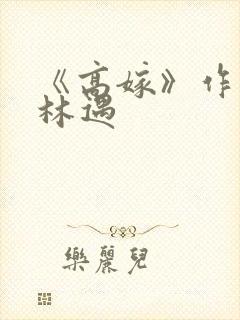 《高嫁》作
林遇
樂麗兒